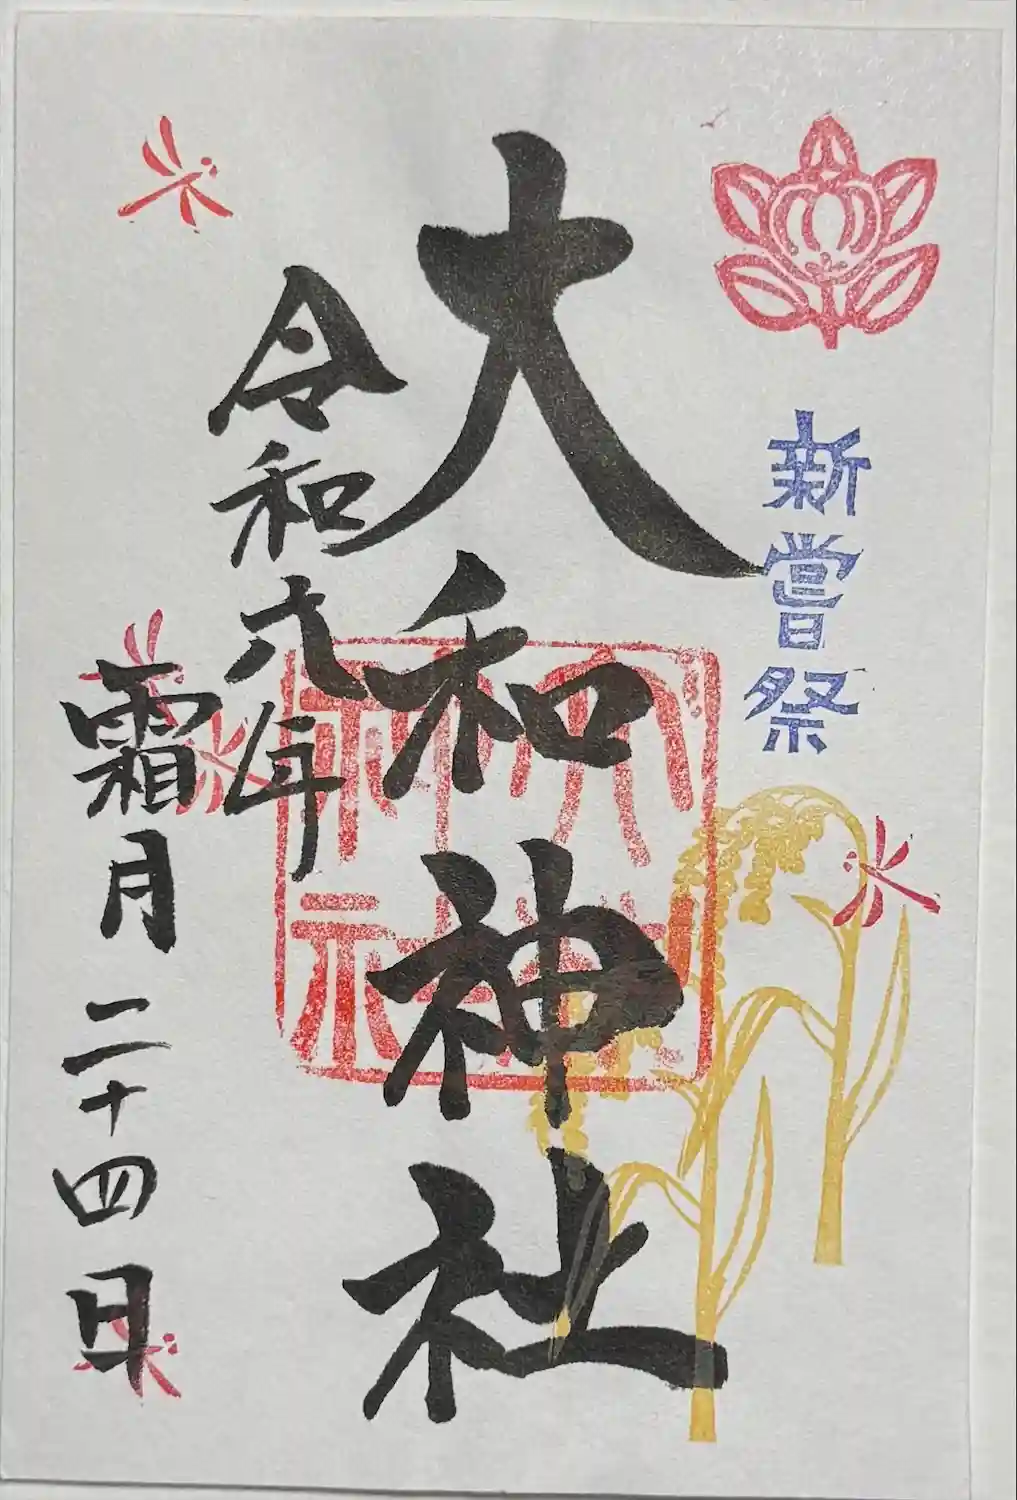 新嘗祭
大和神社
令和六年
霜月二十四日